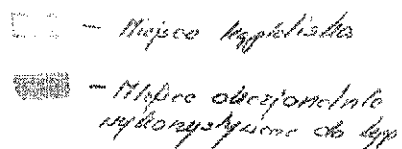 – Miejsce kąpieliska
– Miejsce obecnie
wykorzystywane do kąp